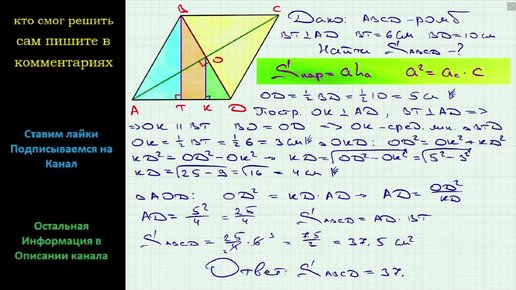 кто смог решить
сам пишите в
комментариях
Ставим лайки
Подписываемся на
Канал
Остальная
Информация в
Описании канала
B C
O
A T K D
Дано: ABCD - ромб
BT⊥AD BT=6см BD=10см
Найти S ABCD -?
S пар = aha a² = ac · c
OD = ½ BD = ½ 10 = 5 см
Постр. OK ⊥ AD, BT⊥AD =>
=> OK ॥ BT BO = OD => OK - сред. лин. ΔBTD
OK = ½ BT = ½ 6 = 3 см ΔOKD: OD² = OK² + KD²
KD² = OD² - OK² => KD = √OD² - OK² = √5² - 3²
KD = √25 - 9 = √16 = 4 см
ΔAOD: OD² = KD · AD => AD = OD²/KD
AD = 5²/4 = 25/4 S ABCD = AD · BT
S ABCD = 25/4 · 6 3 = 75/2 = 37,5 см²
Ответ: S ABCD = 37,